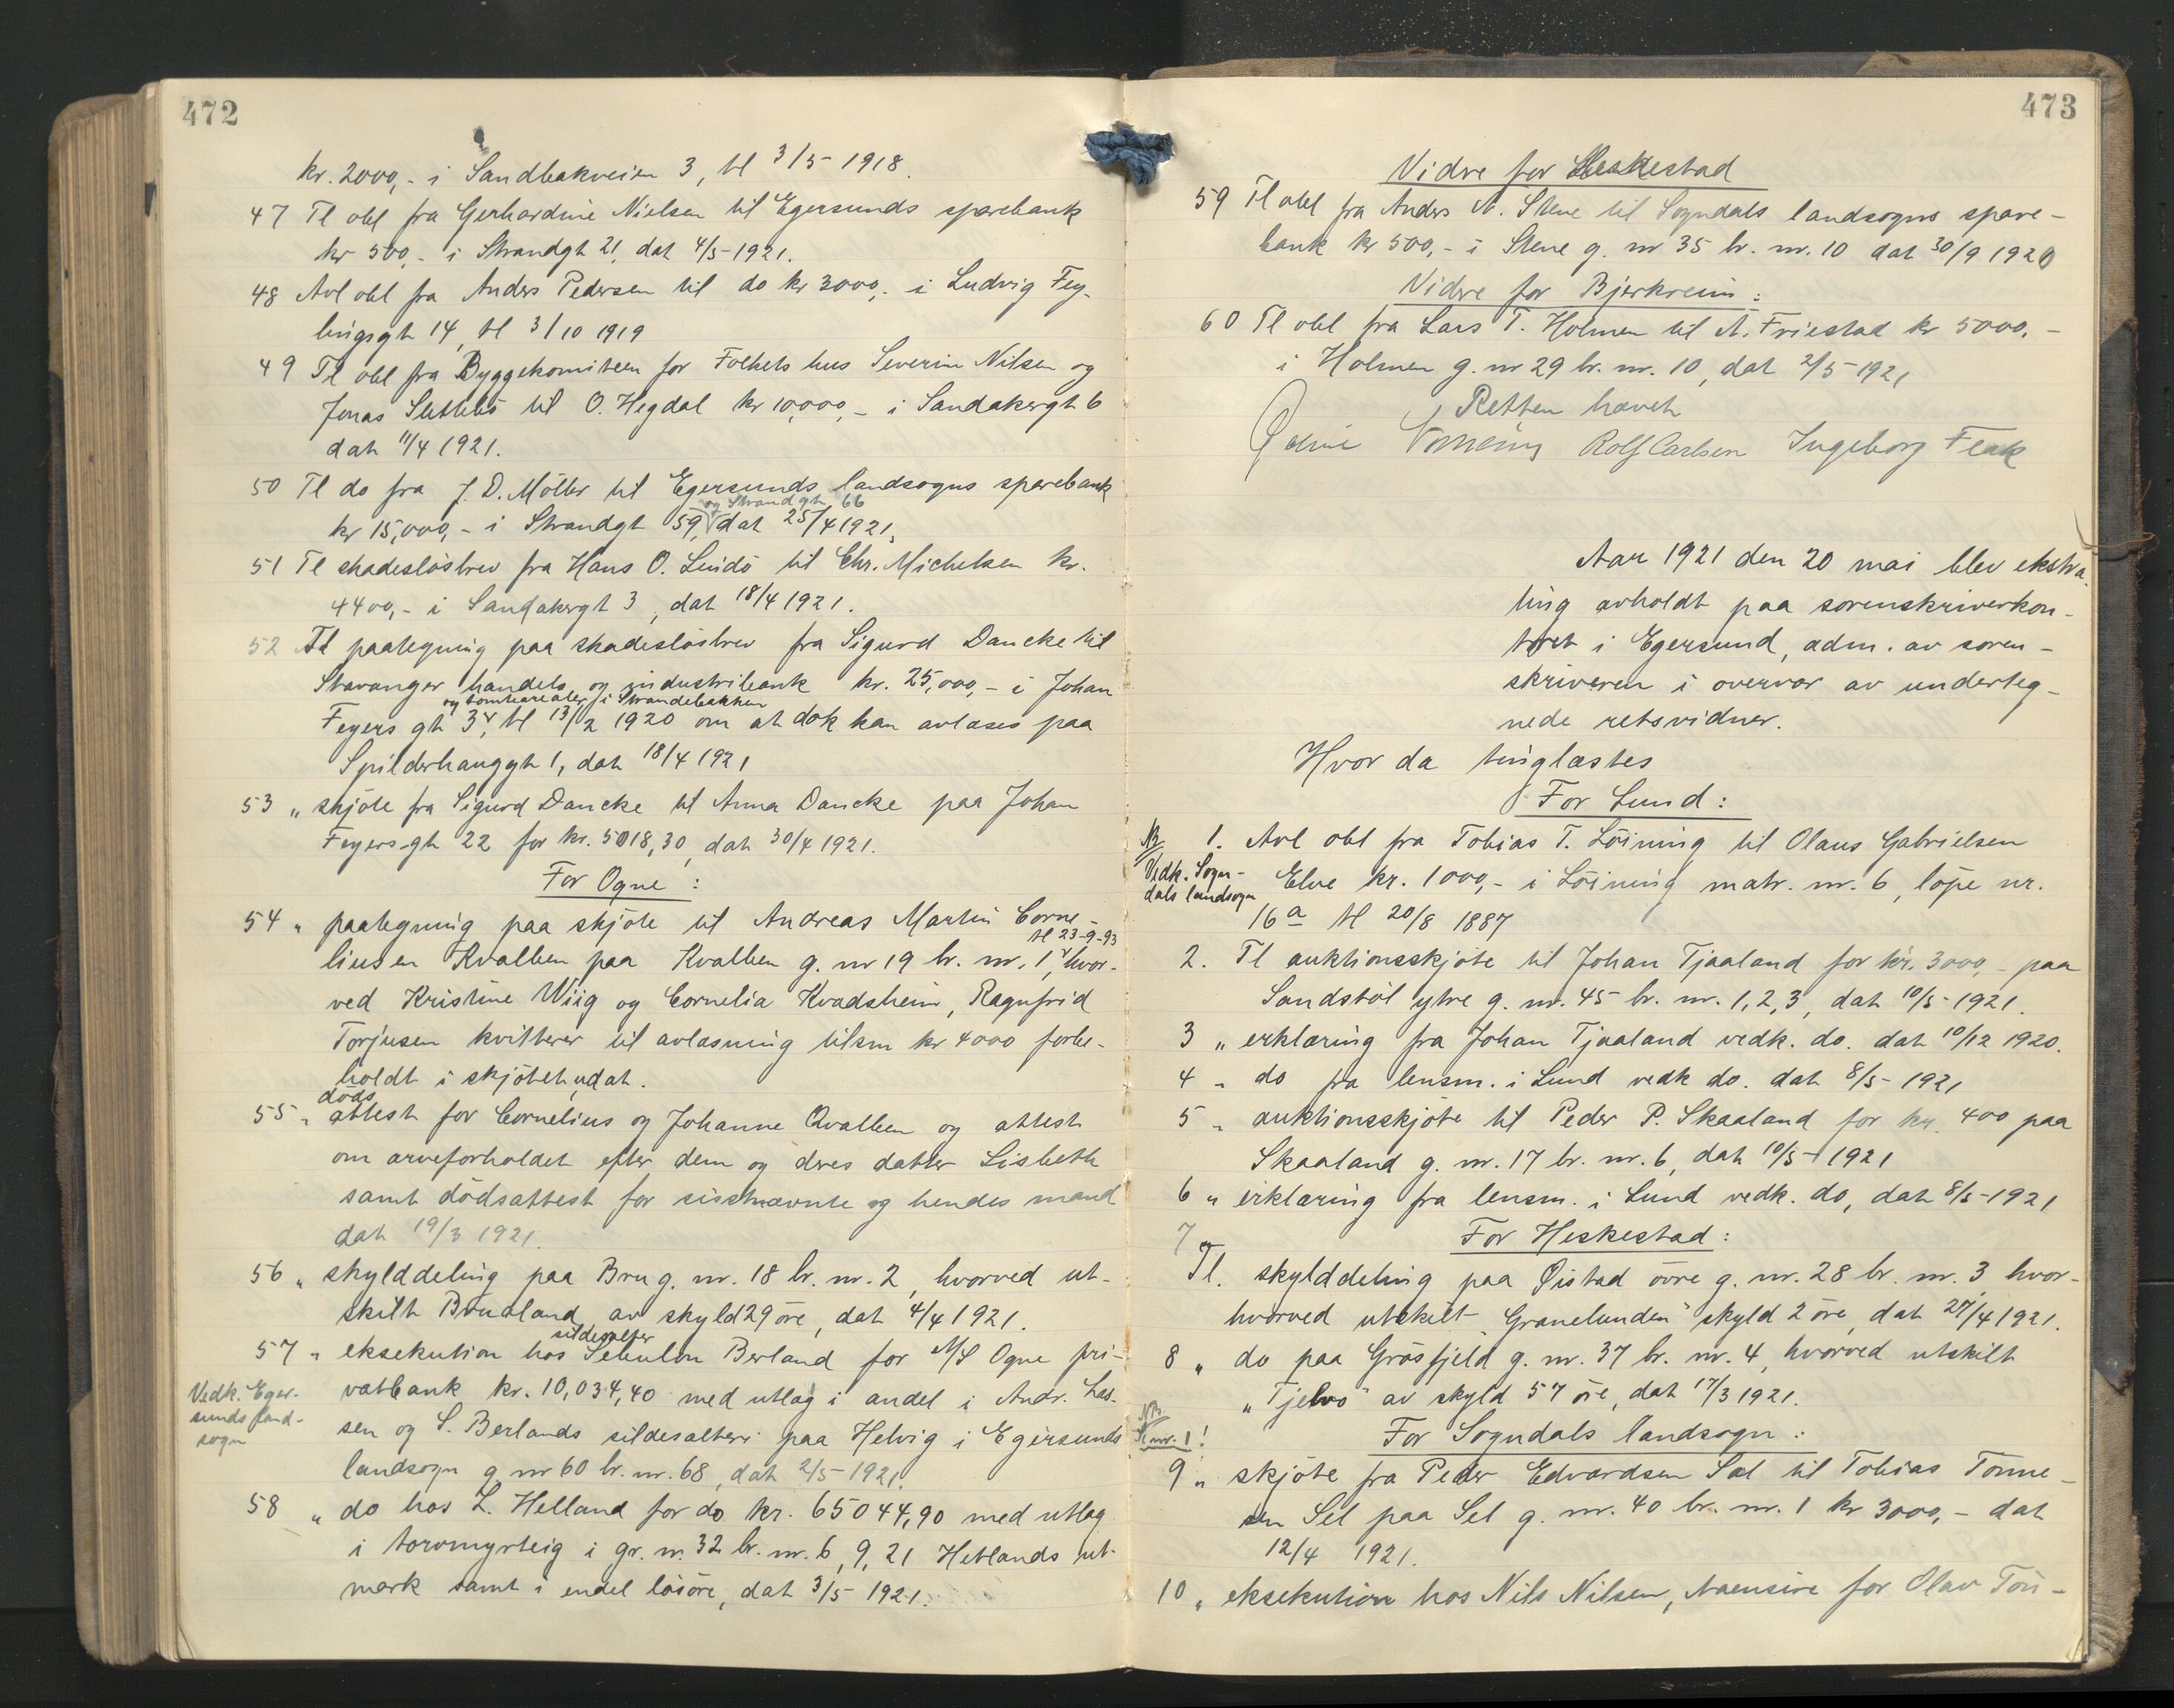 472
kr. 2000,- i Sandbakveien 3, tl 3/5-1918.
47 Tl obl fra Gerhardine Nielsen til Egersunds sparebank
kr 500,- i Strandgt 21, dat 4/5-1921.
48 Avl obl fra Anders Pedersen til do kr 3000,- i Ludvig Fey-
lingsgt 14, tl 3/10 1919
49 Tl obl fra Byggekomiteen for Folkets hus Severin Nilsen og
Jonas Slettebö til O. Hegdal kr 10,000,- i Sandakergt 6
dat 11/4 1921.
50 Tl do fra J. D. Möller til Egersunds landsogns sparebank
og Strandgt 66
kr 15,000,- i Strandgt 59, dat 25/4 1921,
51 Tl skadeslösbrev fra Hans O. Lindö til Chr. Michelsen kr.
4400,- i Sandakergt 3, dat 18/4 1921.
52 Tl paategning paa skadeslösbrev fra Sigurd Dancke til
Stavanger handels og industribank kr. 25,000,- i Johan
og tomtearealer i Strandebakken
Feyers gt 3, tl 13/2 1920 om at dok kan avlæses paa
Spilderhauggt 1, dat 18/4 1921
53 " skjöte fra Sigurd Dancke til Anna Dancke paa Johan
Feyers gt 22 for kr. 5018,30, dat 30/4 1921.
For Ogne :
54 " paategning paa skjöte til Andreas Martin Corne-
tl 23-9-93
liusen Kvalben paa Kvalben g. nr 19 br. nr. 1, hvor-
ved Kristine Wiig og Cornelia Kvadsheim, Ragnfrid
Torjusen kvitterer til avlæsning tilsm kr 4000 forbe-
holdt i skjötet, udat.
döds
55 " attest for Cornelius og Johanne Qvalben og attest
om arveforholdet efter dem og deres datter Lisbeth
samt dödsattest for sisstnævnte og hendes mand
dat 19/3 1921.
56 " skylddeling paa Bru g. nr. 18 br. nr. 2, hvorved ut-
skilt Brualand av skyld 29 öre, dat 4/4 1921.
sildesalter
57 " eksekution hos Sebulon Berland for A/S Ogne pri-
Vedk. Eger-
sunds land-
sogn
vatbank kr. 10,034,40 med utlag i andel i Andr. Las-
sen og S. Berlands sildesalteri paa Helvig i Egersunds
landsogn g. nr 60 br. nr. 68, dat 2/5-1921.
58 " do hos L. Helland for do kr. 65044,90 med utlag
i torvmyrteig i gr. nr. 32 br. nr. 6, 9, 21 Hetlands ut-
mark samt i endel lösöre, dat 3/5 1921.
473
Vidre for Heskestad
59 Tl obl fra Anders A. Stene til Sogndals landsogns spare-
bank kr 500,- i Stene g. nr 35 br. nr. 10 dat 30/9 1920
Vidre for Bjerkreim :
60 Tl obl fra Lars T. Holmen til A. Friestad kr 5000,-
i Holmen g. nr 29 br. nr. 10, dat 2/5-1921
Retten hævet
Rolf Carlsen Ingeborg Feak
Aar 1921 den 20 mai blev ekstra-
ting avholdt paa sorenskriverkon-
toret i Egersund, adm. av soren-
skriveren i overvær av underteg-
nede retsvidner.
Hvor da tinglæstes
For Lund :
NB
Vedk. Sogn-
dals landsogn
1. Avl obl fra Tobias T. Löining til Olaus Gabrielsen
Elve kr. 1000,- i Löining matr. nr. 6, löpe nr.
16a tl 20/8 1887
2. Tl auktionsskjöte til Johan Tjaaland for kr. 3000,- paa
Sandstöl ytre g. nr. 45 br. nr. 1, 2, 3, dat 10/5-1921.
3 " erklæring fra Johan Tjaaland vedk. do. dat 10/12 1920.
4 " do fra lensm. i Lund vedk do. dat 8/5-1921
5 " auktionsskjöte til Peder P. Skaaland for kr. 400 paa
Skaaland g. nr. 17 br. nr. 6, dat 10/5-1921
6 " erklæring fra lensm. i Lund vedk. do, dat 8/5-1921
For Heskestad :
7 Tl. skylddeling paa Öistad övre g. nr. 28 br. nr. 3 hvor-
hvorved utskilt "Granelunden" skyld 2 öre, dat 27/4 1921.
8 " do paa Grösfjeld g. nr. 37 br. nr. 4, hvorved utskilt
"Tjelvo" av skyld 57 öre, dat 17/3 1921.
NB
Se nr. 1!
For Sogndals landsogn :
9 " skjöte fra Peder Edvardsen Sæl til Tobias Tönne-
sen Sel paa Sel g. nr. 40 br. nr. 1 kr 3000,- dat
12/4 1921.
10 " eksekution hos Nils Nilsen, for Olav Tön-